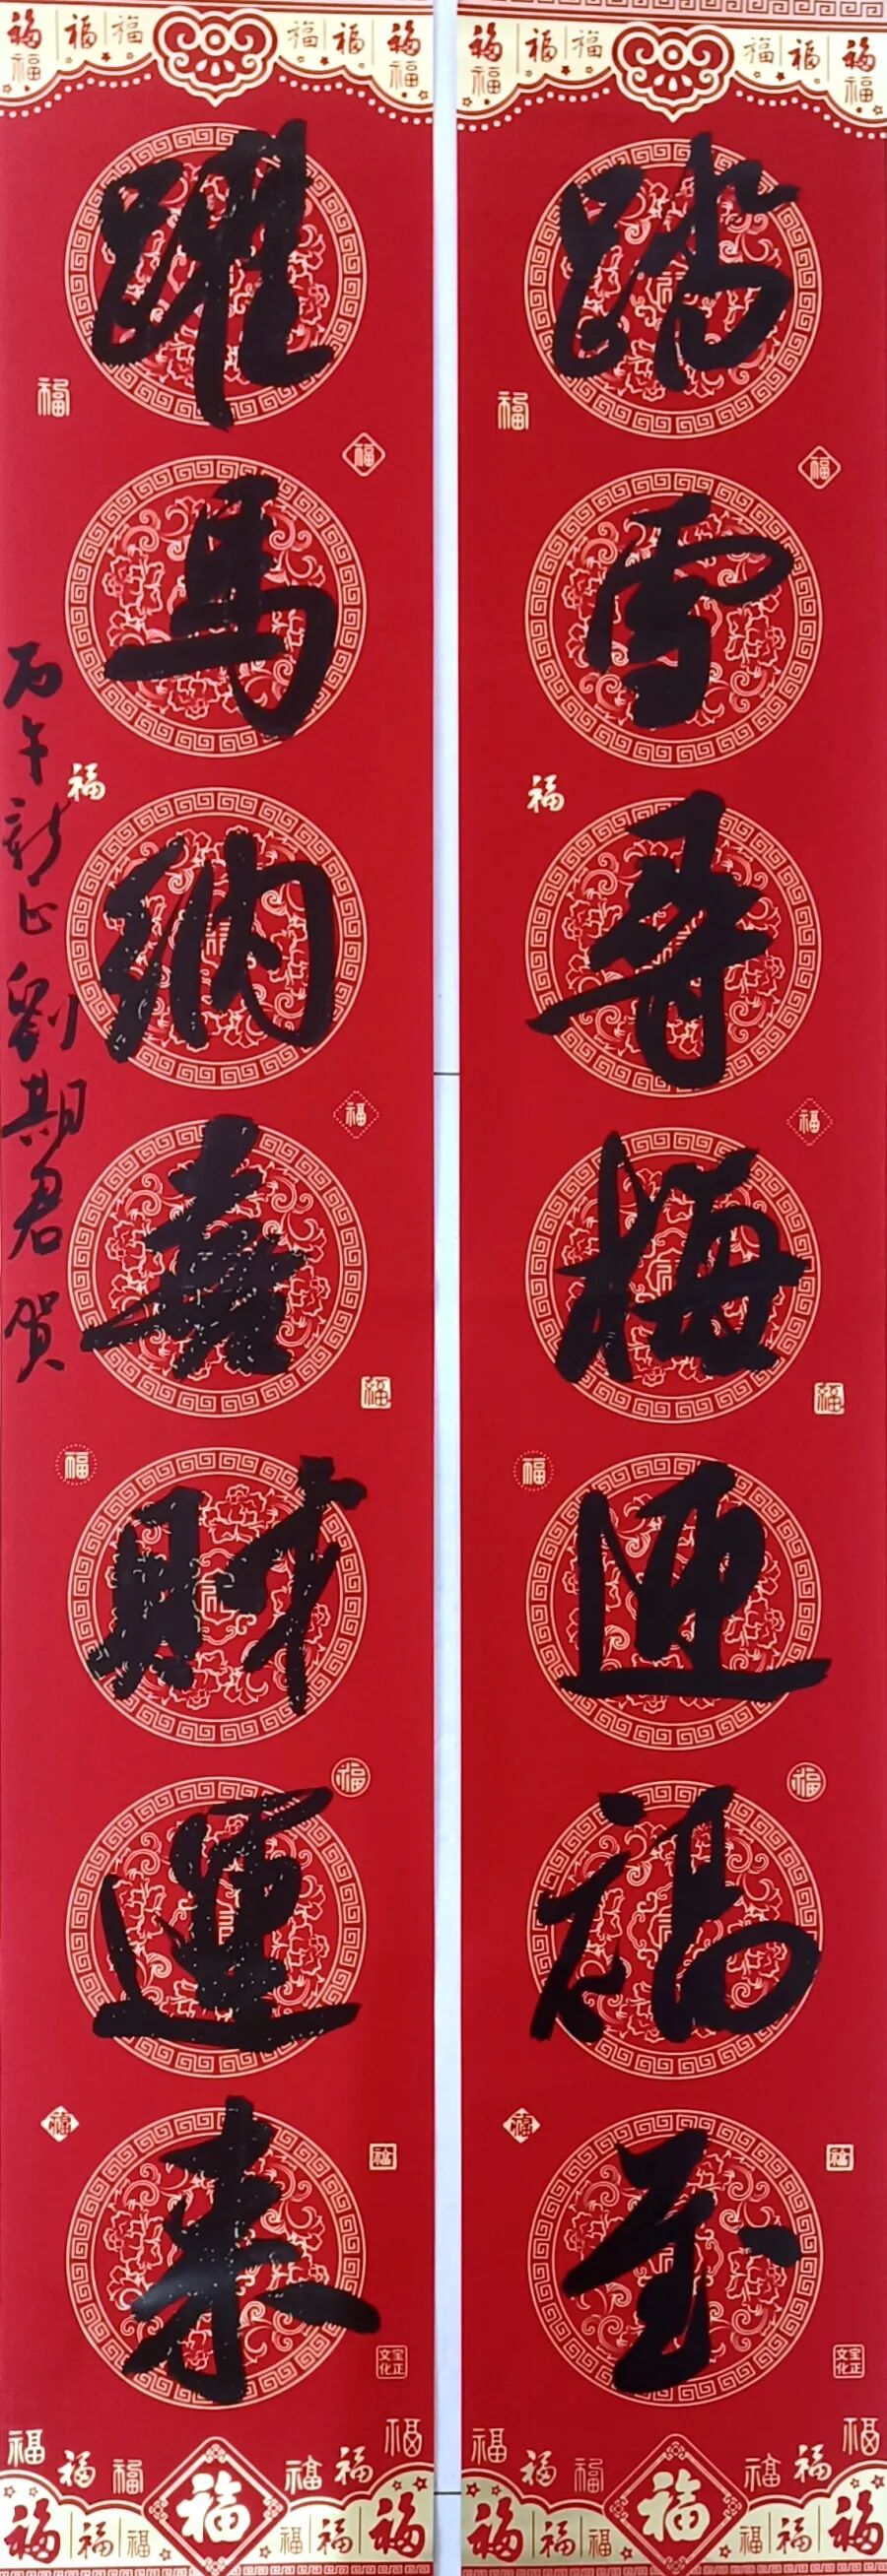 踏雪寻梅迎福至
跃马纳喜财运来
丙午新正劉期君贺
福
宝正文化